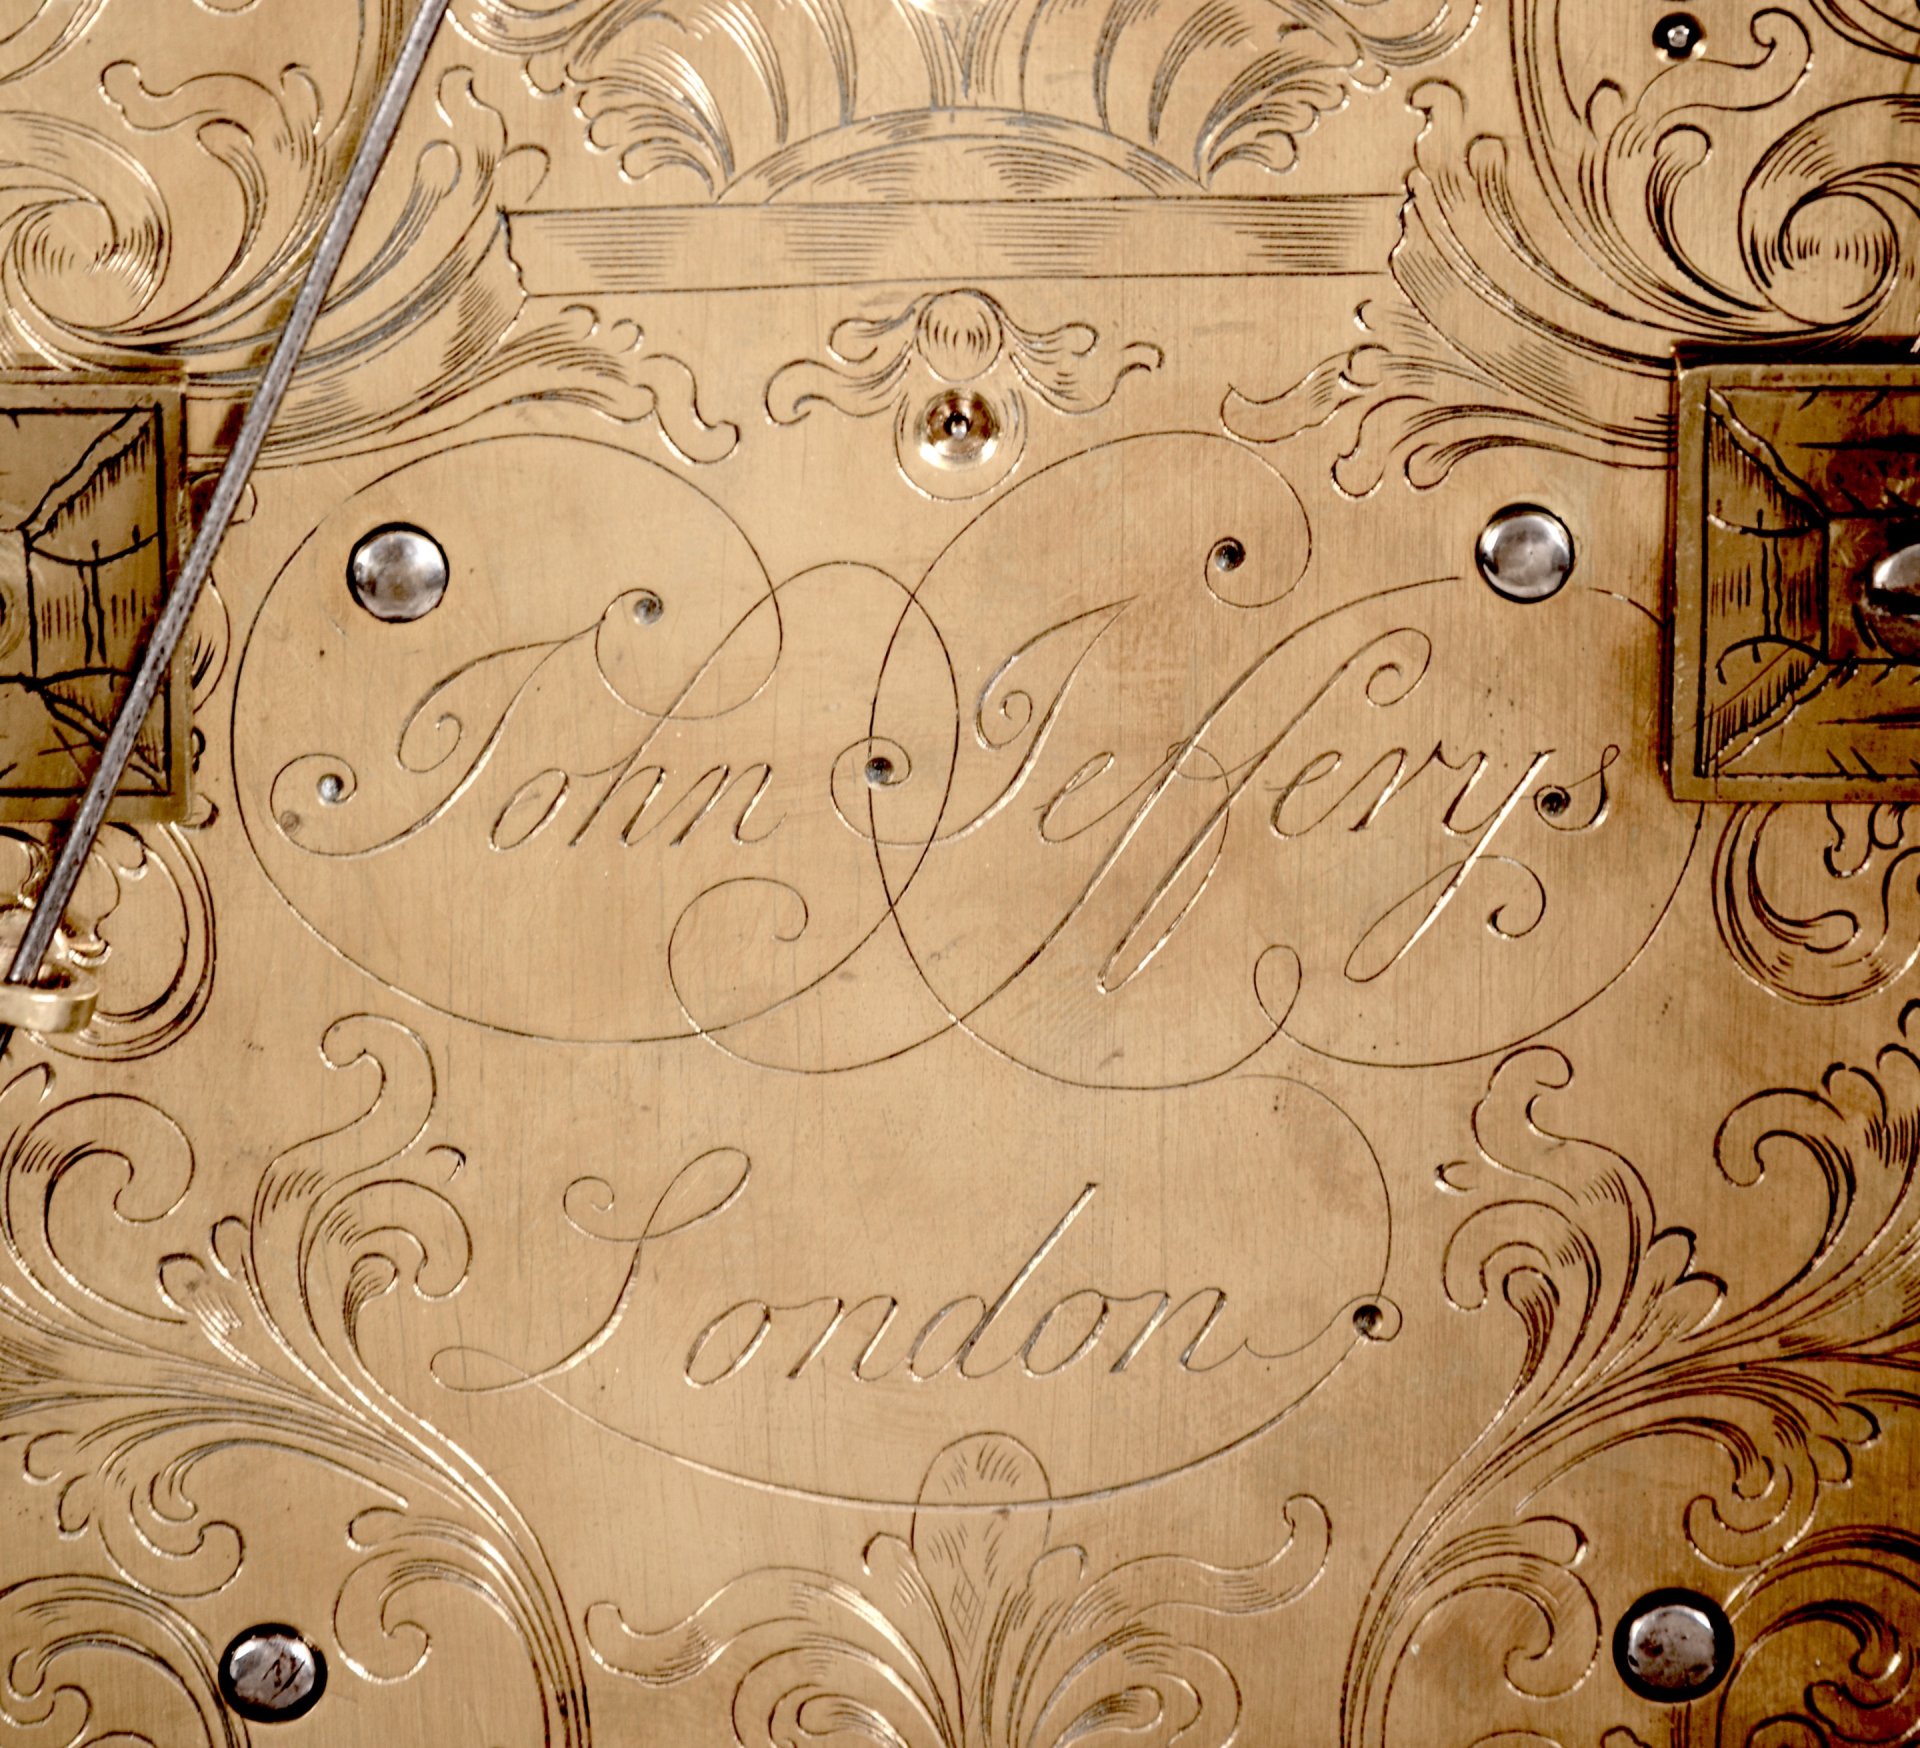 John Jefferys
London